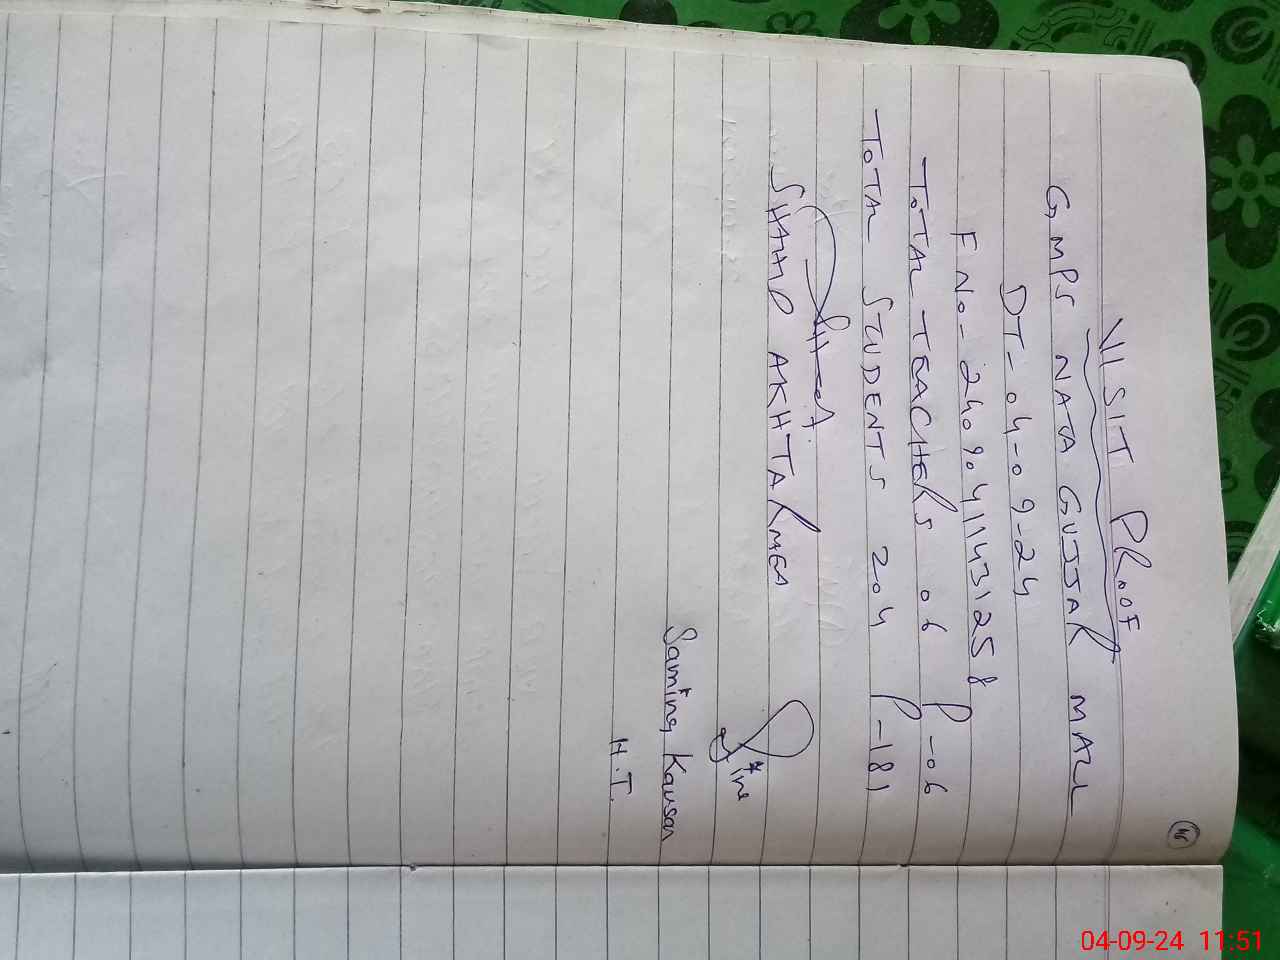 VISIT PROOF
GMPS NATA GUJJAR MALL
DT-04-09-24
F NO-240904114312 58
TOTAL TEACHERS 06 P-06
TOTAL STUDENTS 204 P-181
SHAHID AKHTAR MEA
Samina Kausar
H.T.
04-09-24 11:51